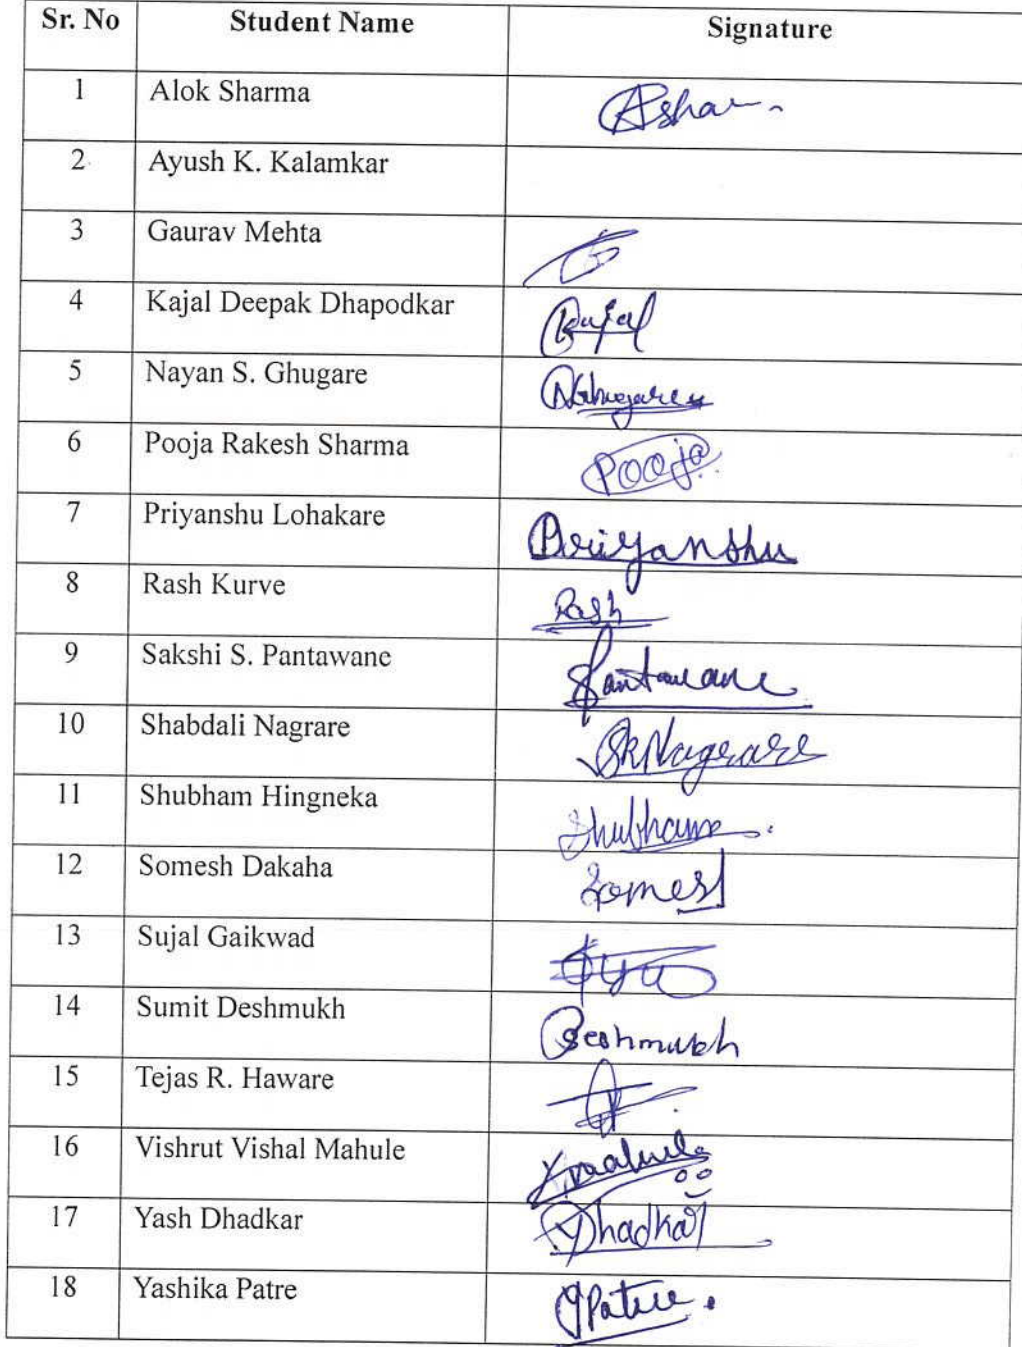 Sr. No Student Name Signature
1 Alok Sharma Asha
2 Ayush K. Kalamkar
3 Gaurav Mehta
4 Kajal Deepak Dhapodkar Kajal
5 Nayan S. Ghugare NGhugare
6 Pooja Rakesh Sharma Pooja
7 Priyanshu Lohakare Priyanshu
8 Rash Kurve Rash
9 Sakshi S. Pantawane Pantawane
10 Shabdali Nagrare SKNagrare
11 Shubham Hingneka Shubham
12 Somesh Dakaha Somesh
13 Sujal Gaikwad
14 Sumit Deshmukh Deshmukh
15 Tejas R. Haware
16 Vishrut Vishal Mahule Vmahule
17 Yash Dhadkar YDhadkar
18 Yashika Patre YPatre.